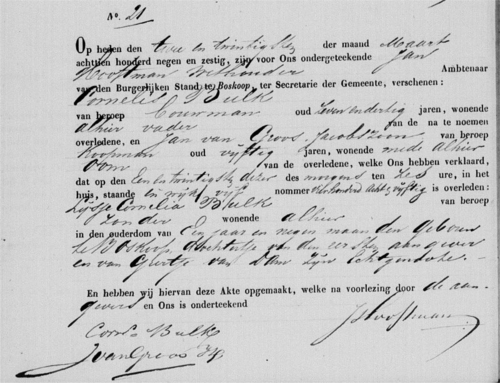 No. 21
Op heden den twee en twintigste der maand Maart
achttien honderd negen en zestig, zijn voor Ons ondergeteekend Jan
Hooftman Wethouder Ambtenaar
van den Burgerlijken Stand te Boskoop, ter Secretarie der Gemeente, verschenen:
Cornelis Bulk
van beroep Bouwman oud zeven en dertig jaren, wonende
alhier vader van de na te noemen
overledene, en Jan van Groos Jacobszoon van beroep
Koopman oud vijftig jaren, wonende mede alhier
oom van de overledene, welke Ons hebben verklaard,
dat op den Een en twintigste dezer des morgens ten zes ure, in het
huis, staande in wijk vijf nommer Eenhonderd acht en vijftig is overleden:
Zijsje Cornelia Bulk van beroep
Zonder wonende alhier
in den ouderdom van Een jaar en negen maanden geboren
te Boskoop dochtertje van den eersten aangever
en van Geertje van Dam zijn Echtgenoote
En hebben wij hiervan deze Akte opgemaakt, welke na voorlezing door de aan-
gevers en Ons is onderteekend
Corns Bulk
J van Groos Jz
J Hooftman